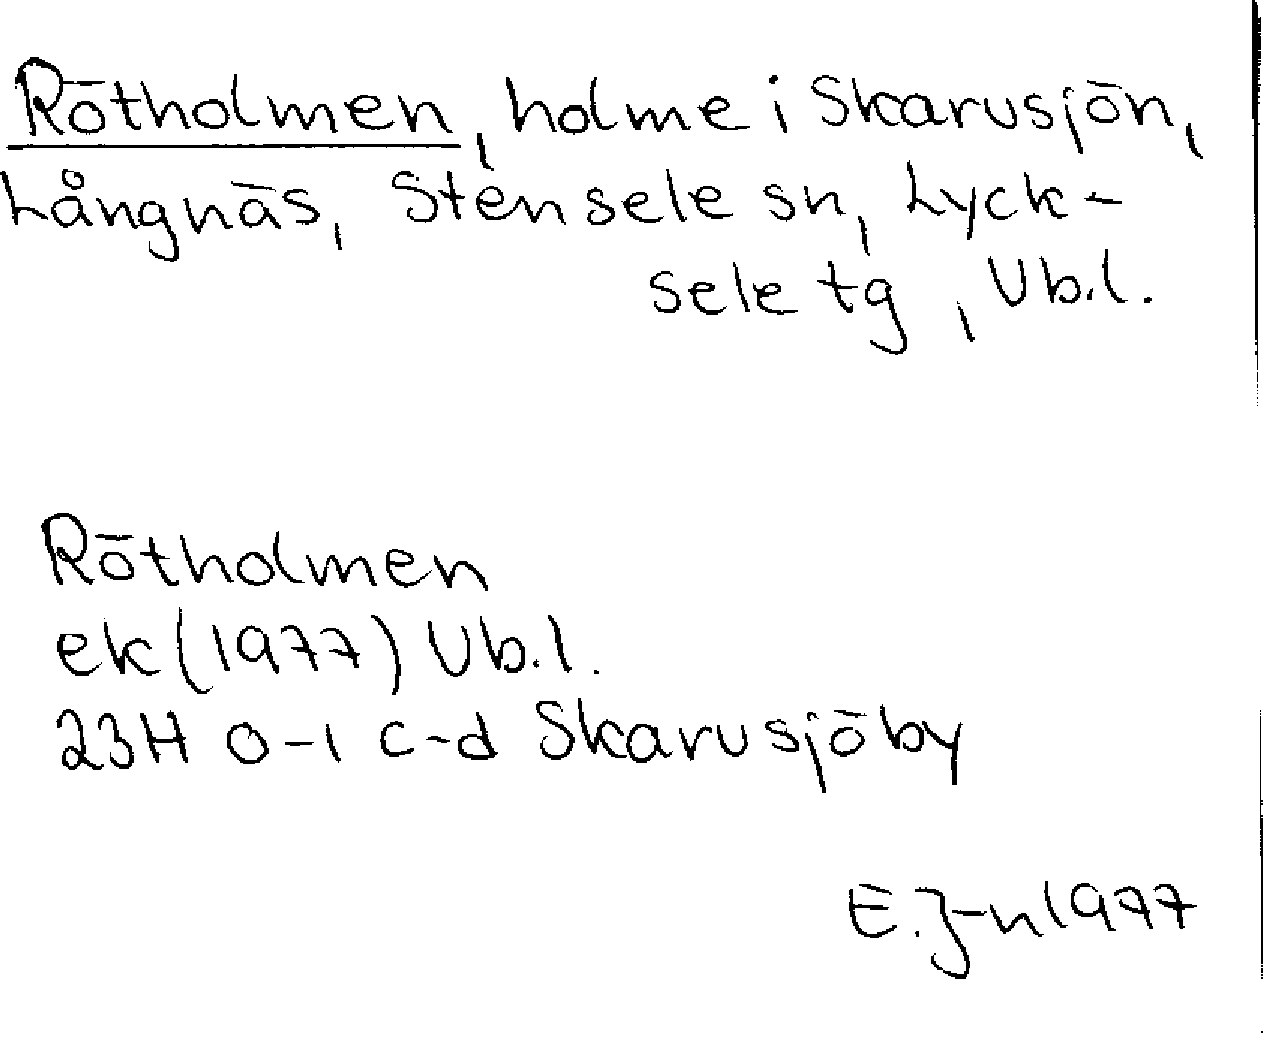 Rötholmen, holme i Skarvsjön,
Långnäs, Stensele sn, Lyck-
sele tg, Vb.l.
Rötholmen
ek (1977) Vb.l.
23H 0-1 c-d Skarvsjöby
E. J-n 1977